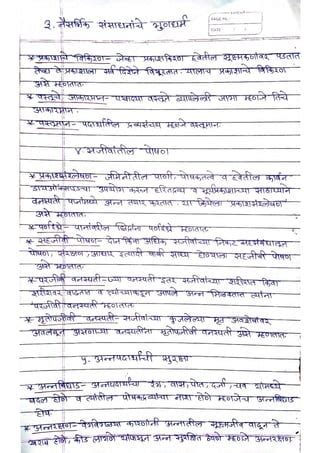 ३. नैसर्गिक संसाधनांचे गुणधर्म
* प्रकाशाचे विकिरण- जेव्हा प्रकाशकिरण हवेतील सूक्ष्मकणांवर पडतात
तेव्हा ते प्रकाशाला सर्व दिशेने विखुरतात. यालाच प्रकाशाचे विकिरण
असे म्हणतात.
* वस्तूचे आकारमान- एखाद्या वस्तूने व्यापलेली जागा म्हणजे तिचे
आकारमान.
* वस्तूमान- पदार्थातील द्रव्यसंचय म्हणजे वस्तूमान.
४ सजीवांतील पोषण
* प्रकाशसंश्लेषण- जमिनीतील पाणी, पोषकतत्वे व हवेतील कार्बन
डायऑक्साइडचा उपयोग करून हरितद्रव्य व सूर्यप्रकाशाच्या साहाय्याने
वनस्पती पानांमध्ये अन्न तयार करतात. या क्रियेला प्रकाशसंश्लेषण
असे म्हणतात.
* पर्णछिद्रे- पानांवरील छिद्रांना पर्णछिद्रे म्हणतात.
* सहजीवी पोषण- दोन किंवा अधिक सजीवांच्या निकट सहसंबंधातून
पोषण, संरक्षण, आधार इत्यादी बाबी साध्य होण्याला सहजीवी पोषण
असे म्हणतात.
* परजीवी वनस्पती- ज्या वनस्पती इतर सजीवांच्या शरीरात किंवा
शरीरावर वाढतात व त्यांच्याकडून आपले अन्न मिळवतात त्यांना
परजीवी वनस्पती म्हणतात.
* मृतोपजीवी वनस्पती- सजीवांच्या कुजलेल्या मृत अवशेषांवर
अवलंबून असणाऱ्या वनस्पतींना मृतोपजीवी वनस्पती असे म्हणतात.
५. अन्नपदार्थांची सुरक्षा
* अन्नबिघाड- अन्नपदार्थांचा रंग, वास, पोत, दर्जा, चव यांमध्ये
बदल होणे व त्यातील पोषकद्रव्यांचा नाश होणे म्हणजेच अन्नबिघाड
होय.
* अन्नरक्षण- वेगवेगळ्या कारणांनी अन्नातील सूक्ष्मजीव वाढून ते
खराब होणे, कीड लागणे यांपासून अन्न सुरक्षित ठेवणे म्हणजे अन्नरक्षण